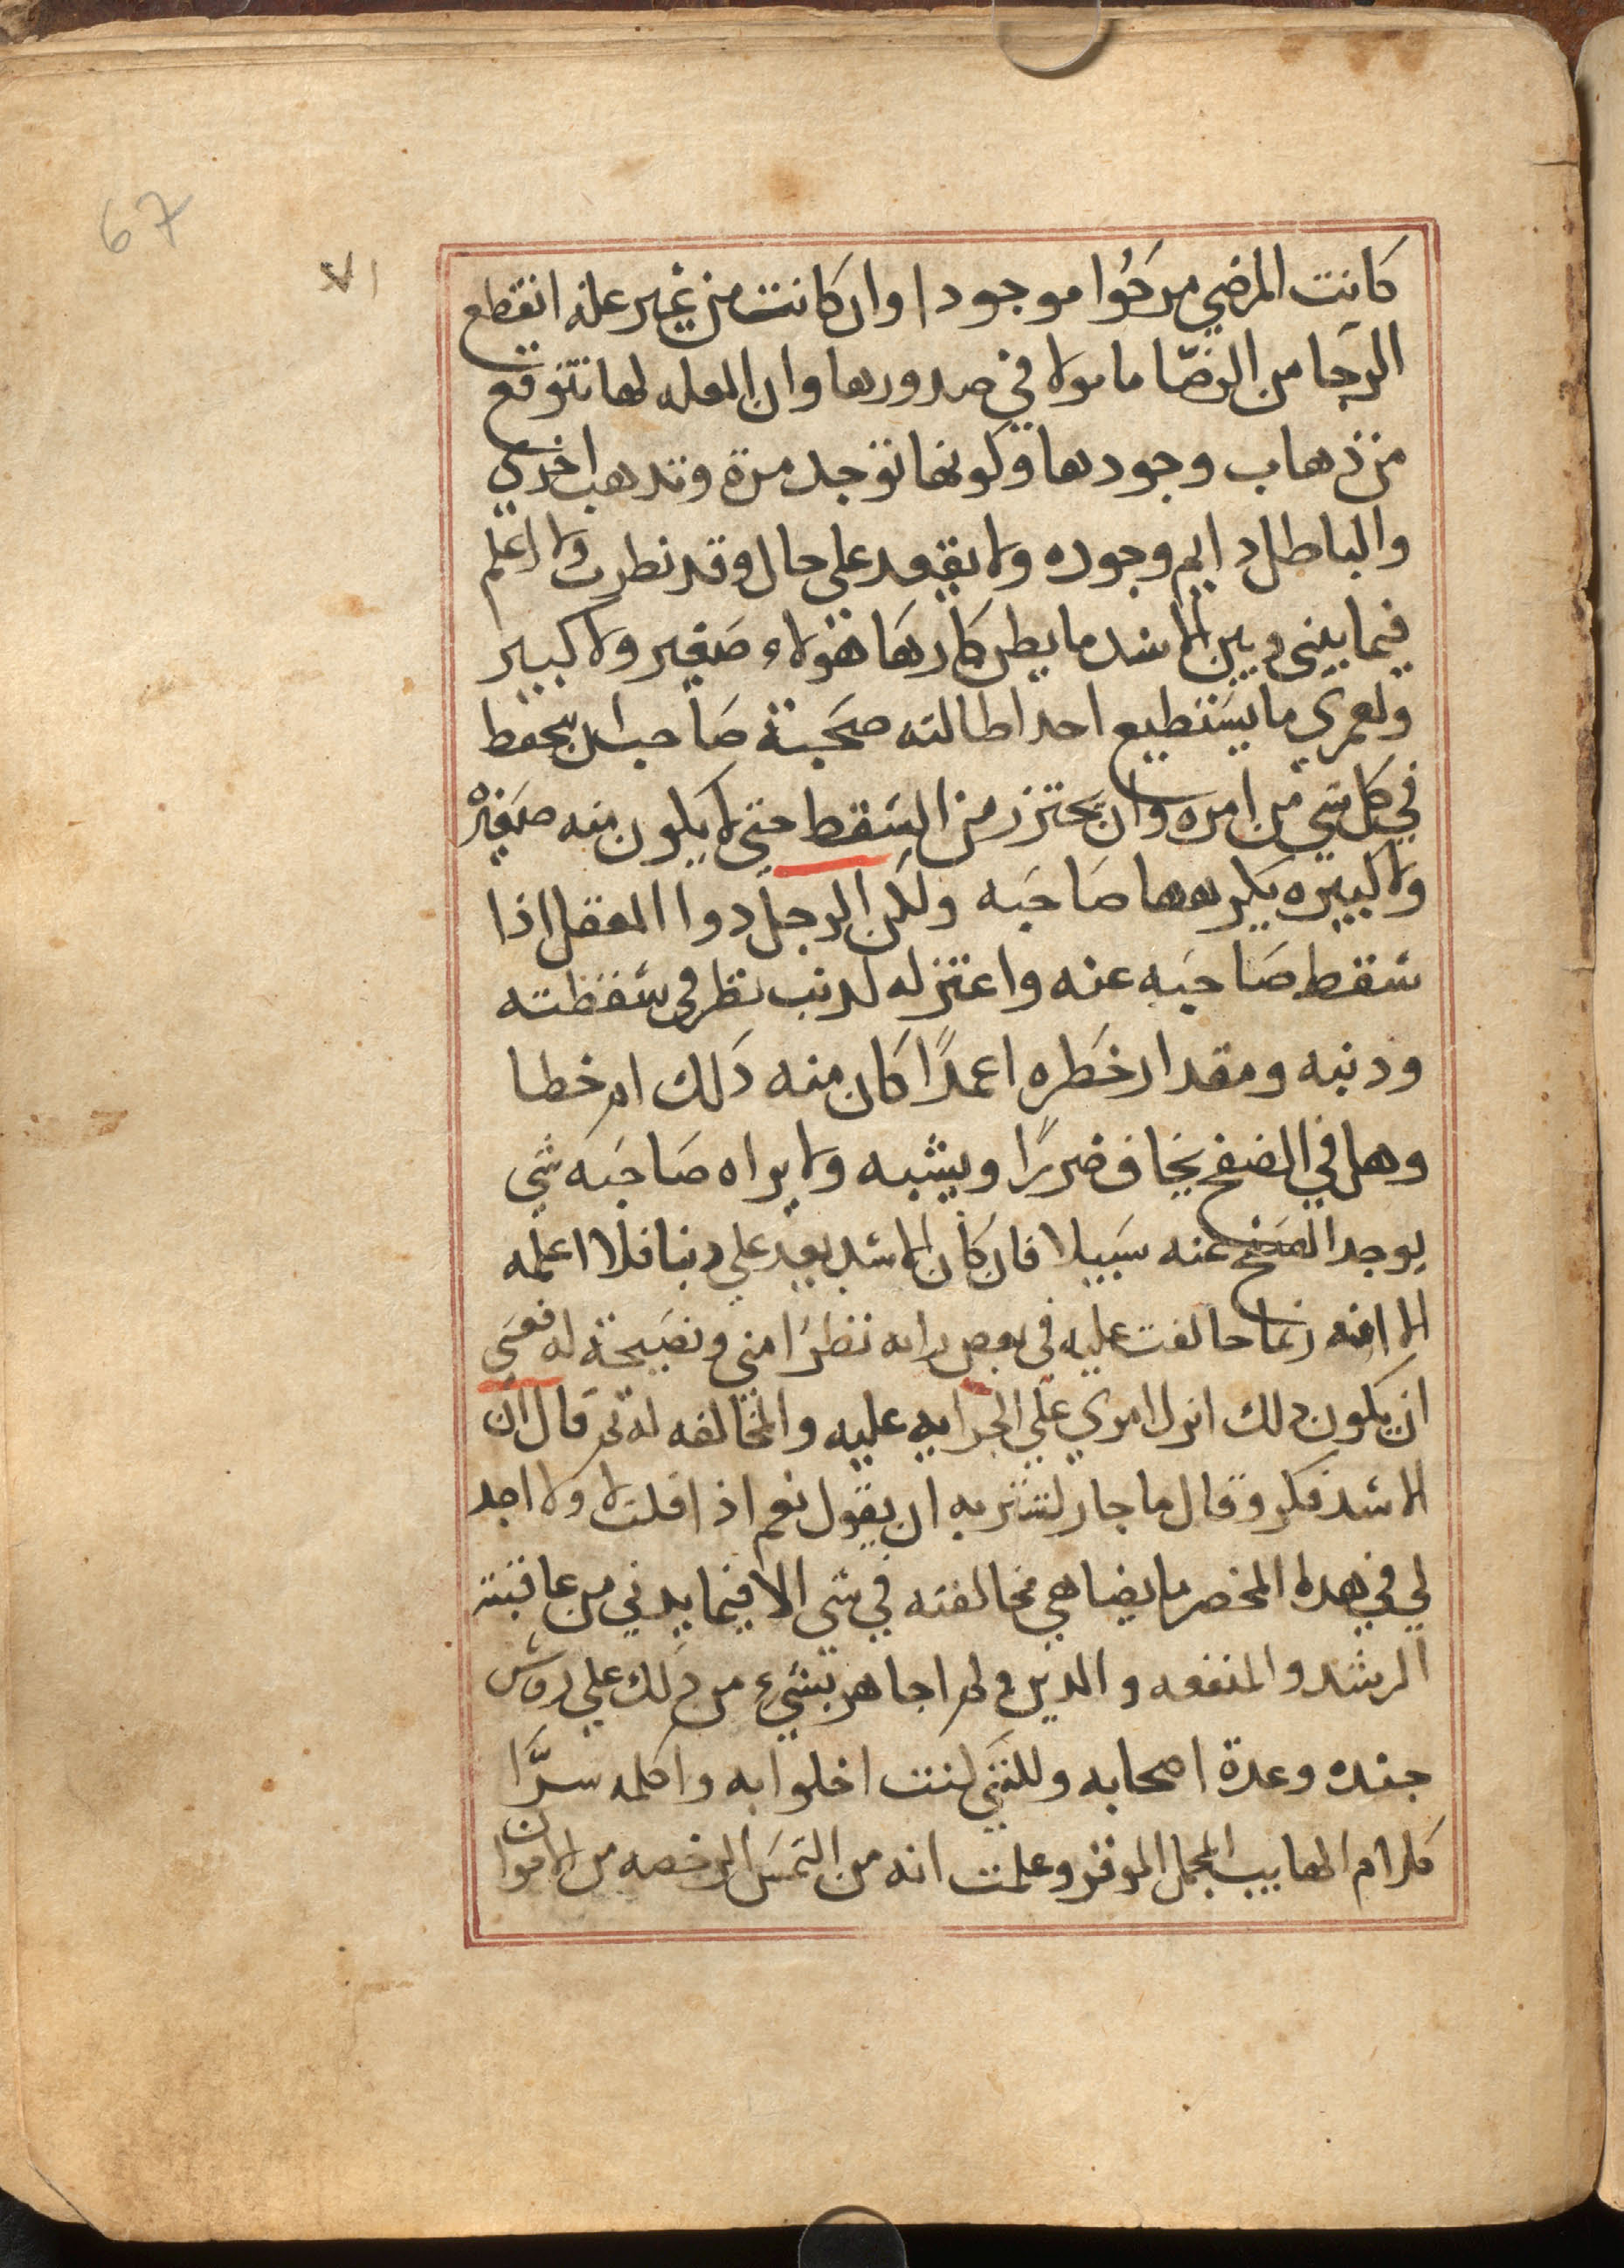 67
٧١
كانت المرضي مرجُوا موجودا وان كانت من غير عله انقطع
الرجا من الرضّا ما مولا في صدورها وان العله لها تتوقع
من ذهاب وجودها وكونها توجد مرة وتدهب اخري
والباطل دايم وجوده ولا يفقد على حال وقد نظرت ولا اعلم
فيما بيني وبين الاسد ما يطن كارها هولاء صغير ولا كبير
ولعمري ما يستطيع احد اطالته صحبة صاحب ان يحفظ
في كل شي من امره وان يحترز من السقط حتى لا يكون منه صغيره
ولا كبيره يكرهها صاحبه ولكن الرجل دوا العقل اذا
سقط صاحبه عنه واعتزله لدنب نظر في سقطته
ودنبه ومقدار خطره اعمدًا كان منه دلك ام خطا
وهل في الصفح يخاف ضررًا ويشبه ولا يراه صاحبه شي
يوجد الصفح عنه سبيلا فان كان الاسد يعد علي دنبا فلا اعلمه
الا انه ربما خالفت عليه في بعض رايه نظرًا مني ونصيحة له فعسَي
ان يكون دلك انزل امري علي الجرايه عليه والمخالفه له ثم قال ان
الاسد فكر وقال ما جار لشتربه ان يقول نعم اذا قلت لا ولا اجد
لي في هدا المخصر ما يضاهي مخالفته في شي الا فيما يدني من عاقبته
الرشد والمنفعه والدين ولم اجاهر بشيء من دلك علي روس
جنده وعدة اصحابه ولكنني كنت اخلوا به واكلمه سرًّا
كلام الهايب المجمل الموقر وعلمت انه من التمس الرخصه من الاخوان